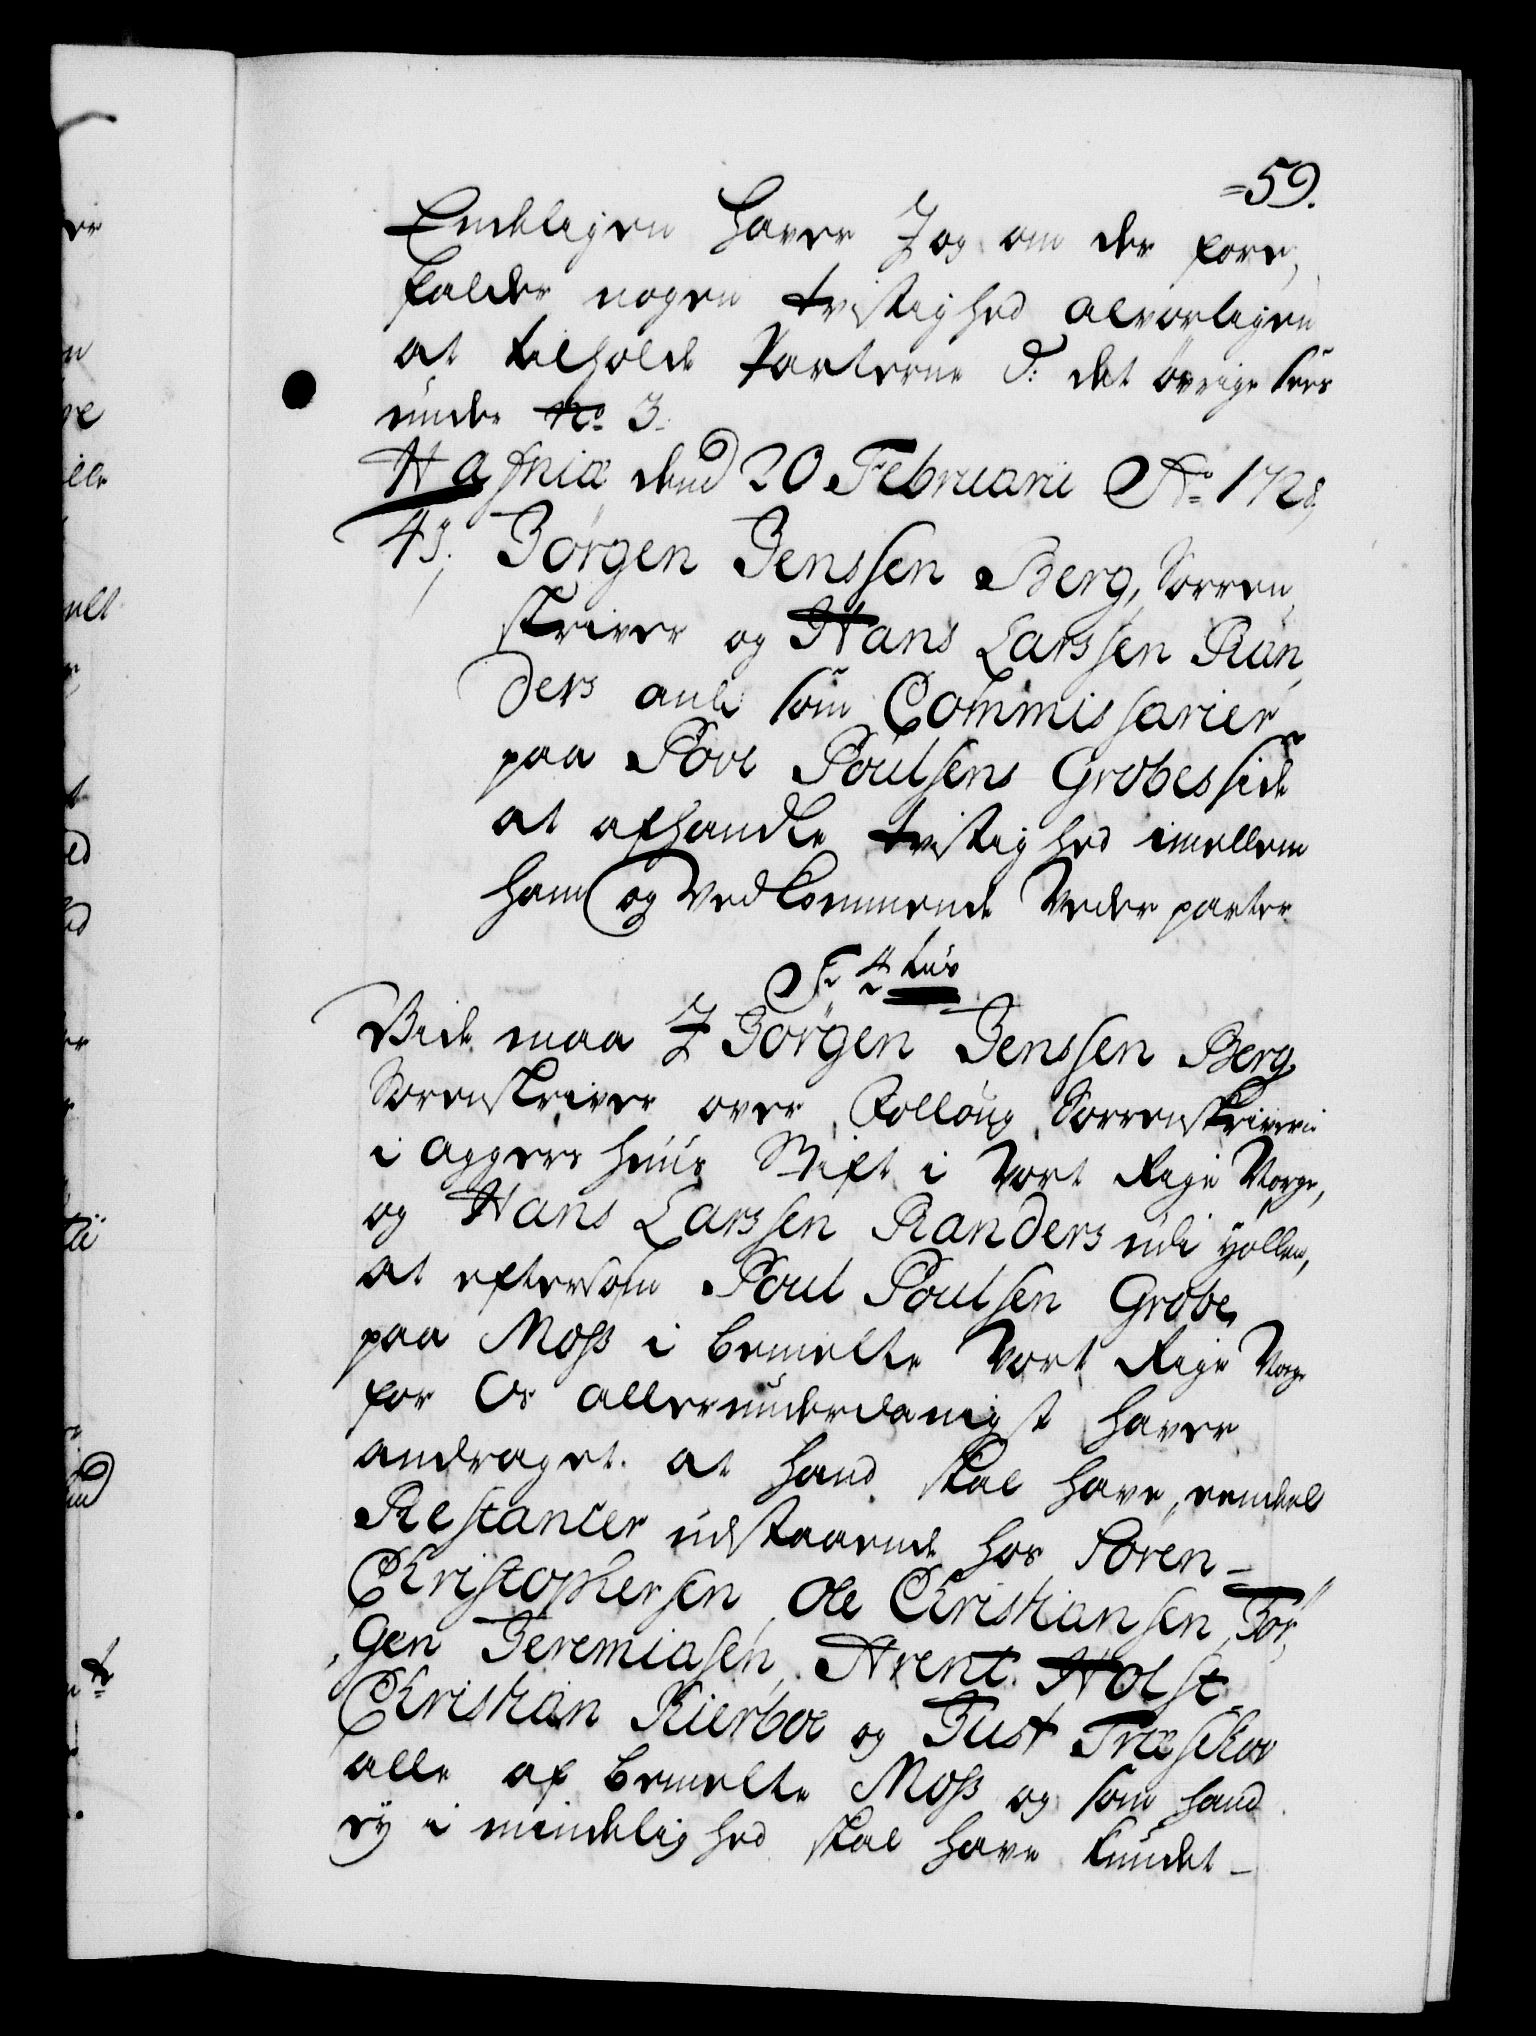 =59.
Endeligen haver I og om der fore,
falder nogen tvistighed alvorligen
at tilholde Parterne &: det övrige sees
under No. 3.
Hafniæ dend 20 Februarii Ao. 1728,
43. Jörgen Jenssen Berg, Sorren,
skriver og Hans Larssen Ran,
ders anl. som Commissarier
paa Povl Poulsens Grobes side
at afhandle tvistighed imellem
ham og Vedkommende Vederparter
F. 4tus
Vide maa I Jörgen Jenssen Berg
Sorenskriver over Folloug Sorrenskriveri
i Aggershuus Stift i Vort Rige Norge,
og Hans Larssen Randers udi Höllen,
at eftersom Poul Poulsen Grobe
paa Moss i bemelte Vort Rige Norge
for Os allerunderdanigst haver
andraget. at hand skal have, eendeel
Restancer udstaaende hos Sören-
Christophersen, Ole Christiansen, Jör,
gen Jeremiasen, Arent Holst
Christian Kierboe og Just Træschow
alle af bemelte Moss og som hand
ey i mindelighed skal have kundet-